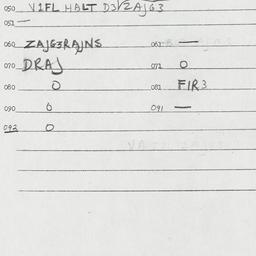 050 V1FL HALT D3VZAJG3
051 —
060 ZAJG3RAJNS 061 —
070 DRAJ 071 O
080 O 081 FIR3
090 O 091 —
092 O